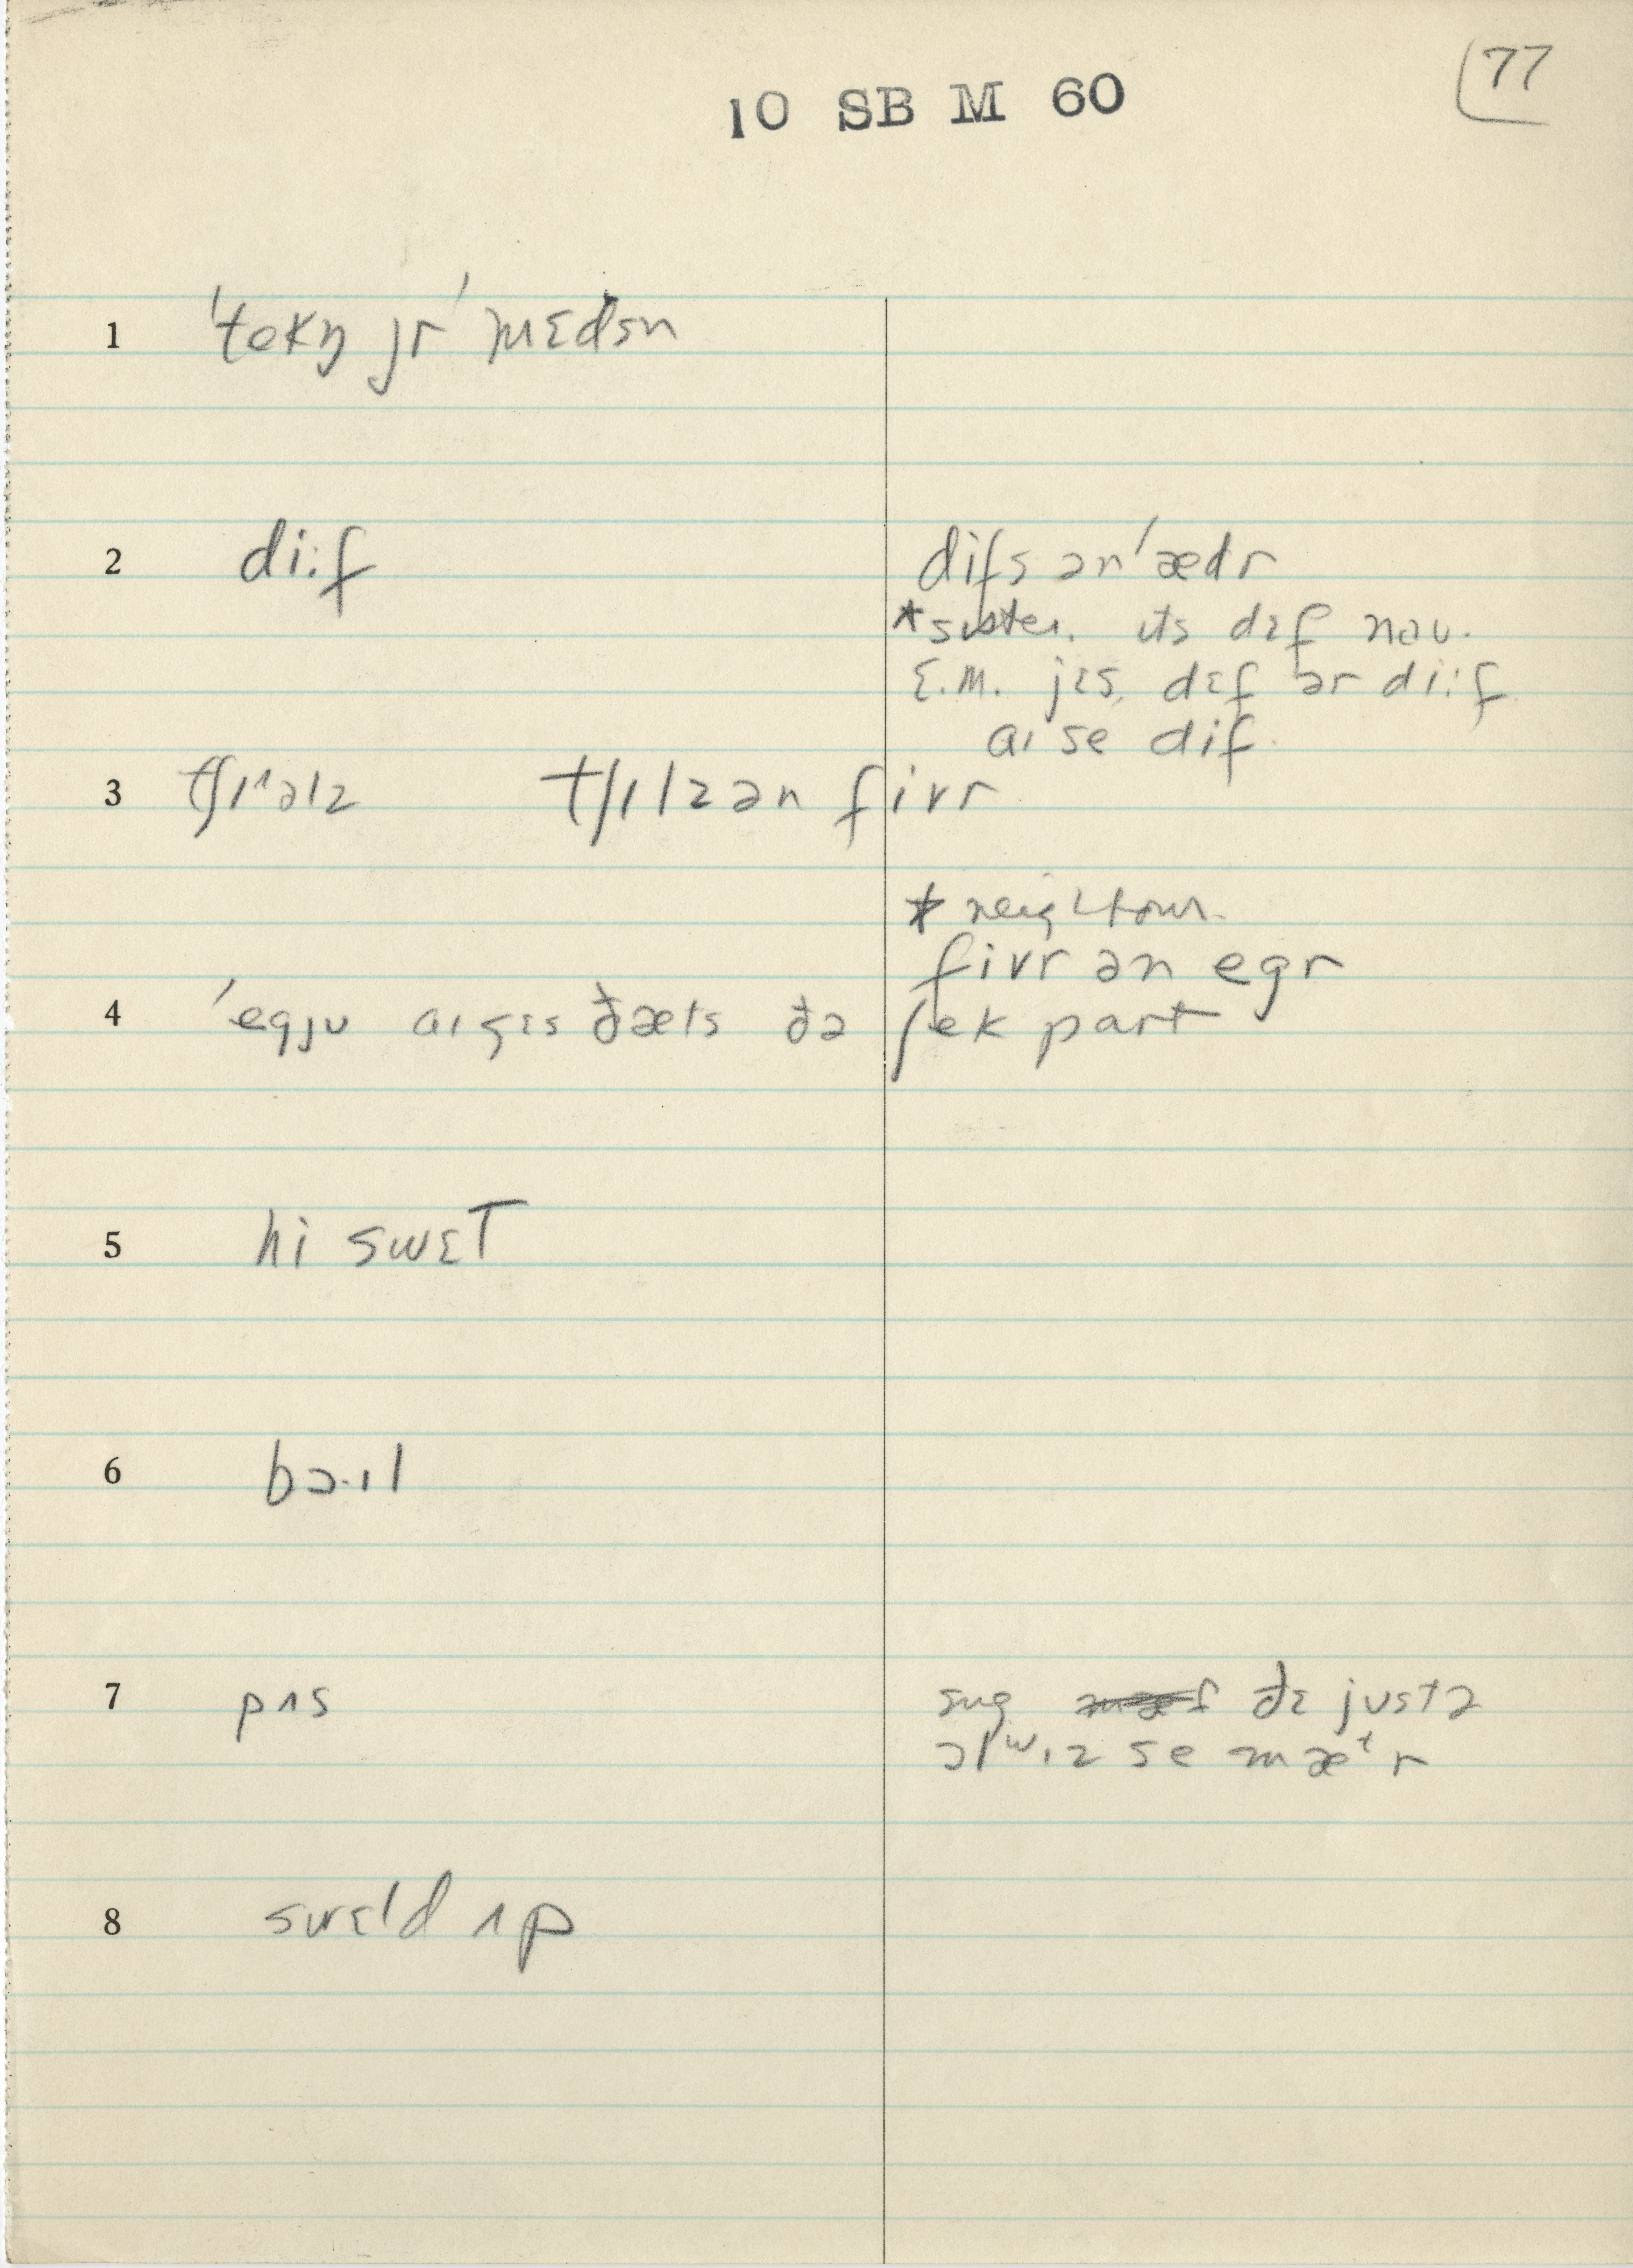 77
10 SB M 60
1 ˈtekŋ jr ˈmɛdsn
2 di:f
difs ən ˈædr
*sister. ɩts dɛf nəu.
E.M. jɛs, dɛf ər di:f
aɩ se dif.
3 tʃɩ^əlz tʃɩlz ən fivr
* neighbour.
fivr ən egr
4 ˈegju aɩ gɛs ðæts ðə ʃek part
5 hi swɛT
6 bɔ·ɩl
7 pʌs
ðɛ justə
ɔlwɩz se mætr
8 swɛld ʌp